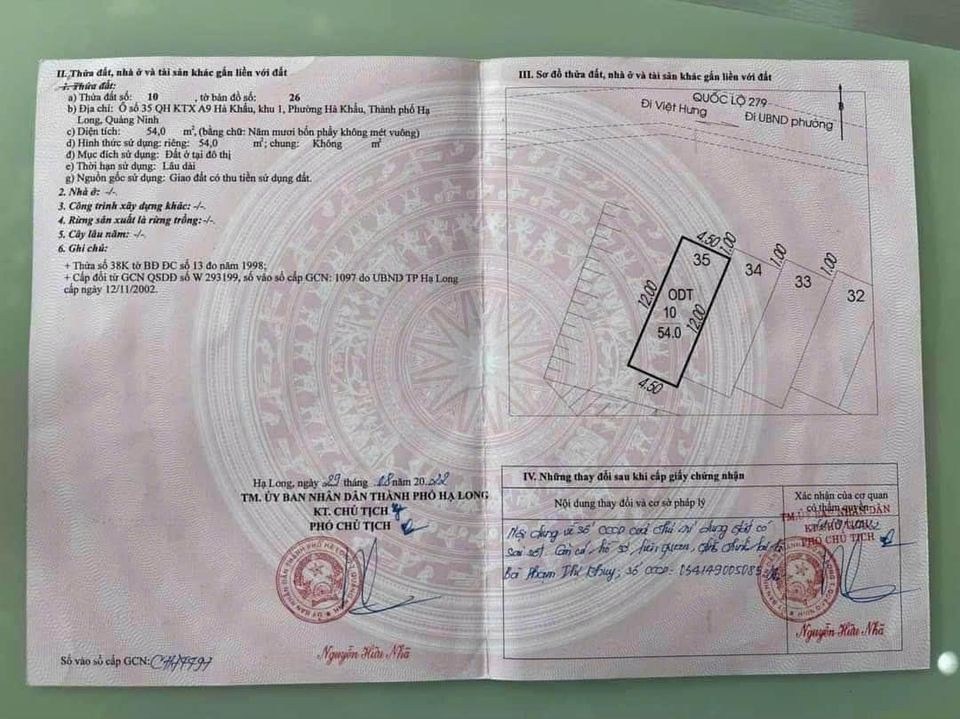 II. Thửa đất, nhà ở và tài sản khác gắn liền với đất
1. Thửa đất:
a) Thửa đất số: 10 , tờ bản đồ số: 26
b) Địa chỉ: Ô số 35 QH KTX A9 Hà Khẩu, khu 1, Phường Hà Khẩu, Thành phố Hạ
Long, Quảng Ninh
c) Diện tích: 54,0 m², (bằng chữ: Năm mươi bốn phẩy không mét vuông)
d) Hình thức sử dụng: riêng: 54,0 m²; chung: Không m²
đ) Mục đích sử dụng: Đất ở tại đô thị
e) Thời hạn sử dụng: Lâu dài
g) Nguồn gốc sử dụng: Giao đất có thu tiền sử dụng đất.
2. Nhà ở: -/-
3. Công trình xây dựng khác: -/-
4. Rừng sản xuất là rừng trồng: -/-
5. Cây lâu năm: -/-
6. Ghi chú:
+ Thửa số 38K tờ BĐ ĐC số 13 đo năm 1998;
+ Cấp đổi từ GCN QSDĐ số W 293199, số vào sổ cấp GCN: 1097 do UBND TP Hạ Long
cấp ngày 12/11/2002.
Hạ Long, ngày 29 tháng 08 năm 2022
TM. ỦY BAN NHÂN DÂN THÀNH PHỐ HẠ LONG
KT. CHỦ TỊCH
PHÓ CHỦ TỊCH
Nguyễn Hữu Nhã
Số vào sổ cấp GCN:
III. Sơ đồ thửa đất, nhà ở và tài sản khác gắn liền với đất
QUỐC LỘ 279
Đi Việt Hưng
Đi UBND phường
B
4.50
1.00
35
34
1.00
33
1.00
32
12.00
ODT
10
12.00
54.0
4.50
IV. Những thay đổi sau khi cấp giấy chứng nhận
Nội dung thay đổi và cơ sở pháp lý
Xác nhận của cơ quan
có thẩm quyền
TM. ỦY BAN NHÂN DÂN
KT. CHỦ TỊCH
PHÓ CHỦ TỊCH
Nội dung về số CCCD của chủ sử dụng đất có
sai sót. Căn cứ hồ sơ liên quan, đính chính lại
Bà Phạm Thị Khuy; số CCCD:
Nguyễn Hữu Nhã